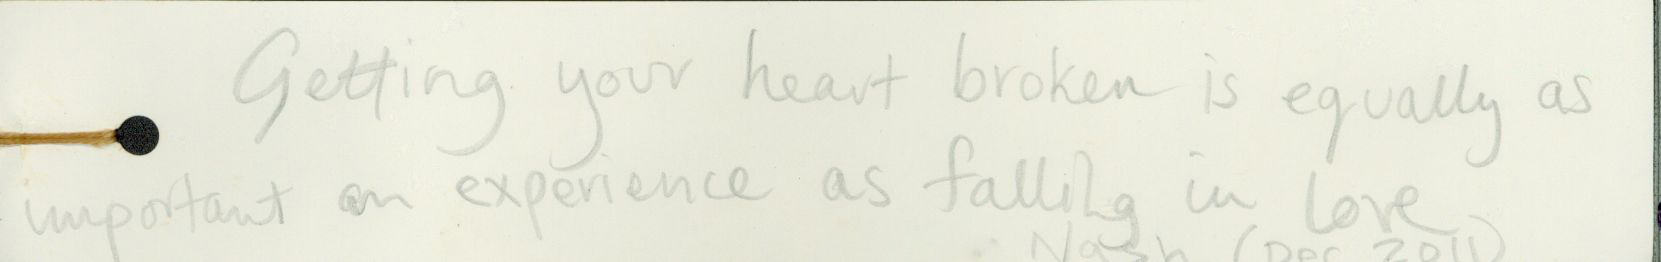 Getting your heart broken is equally as
important an experience as falling in love
Nash (Dec 2011)